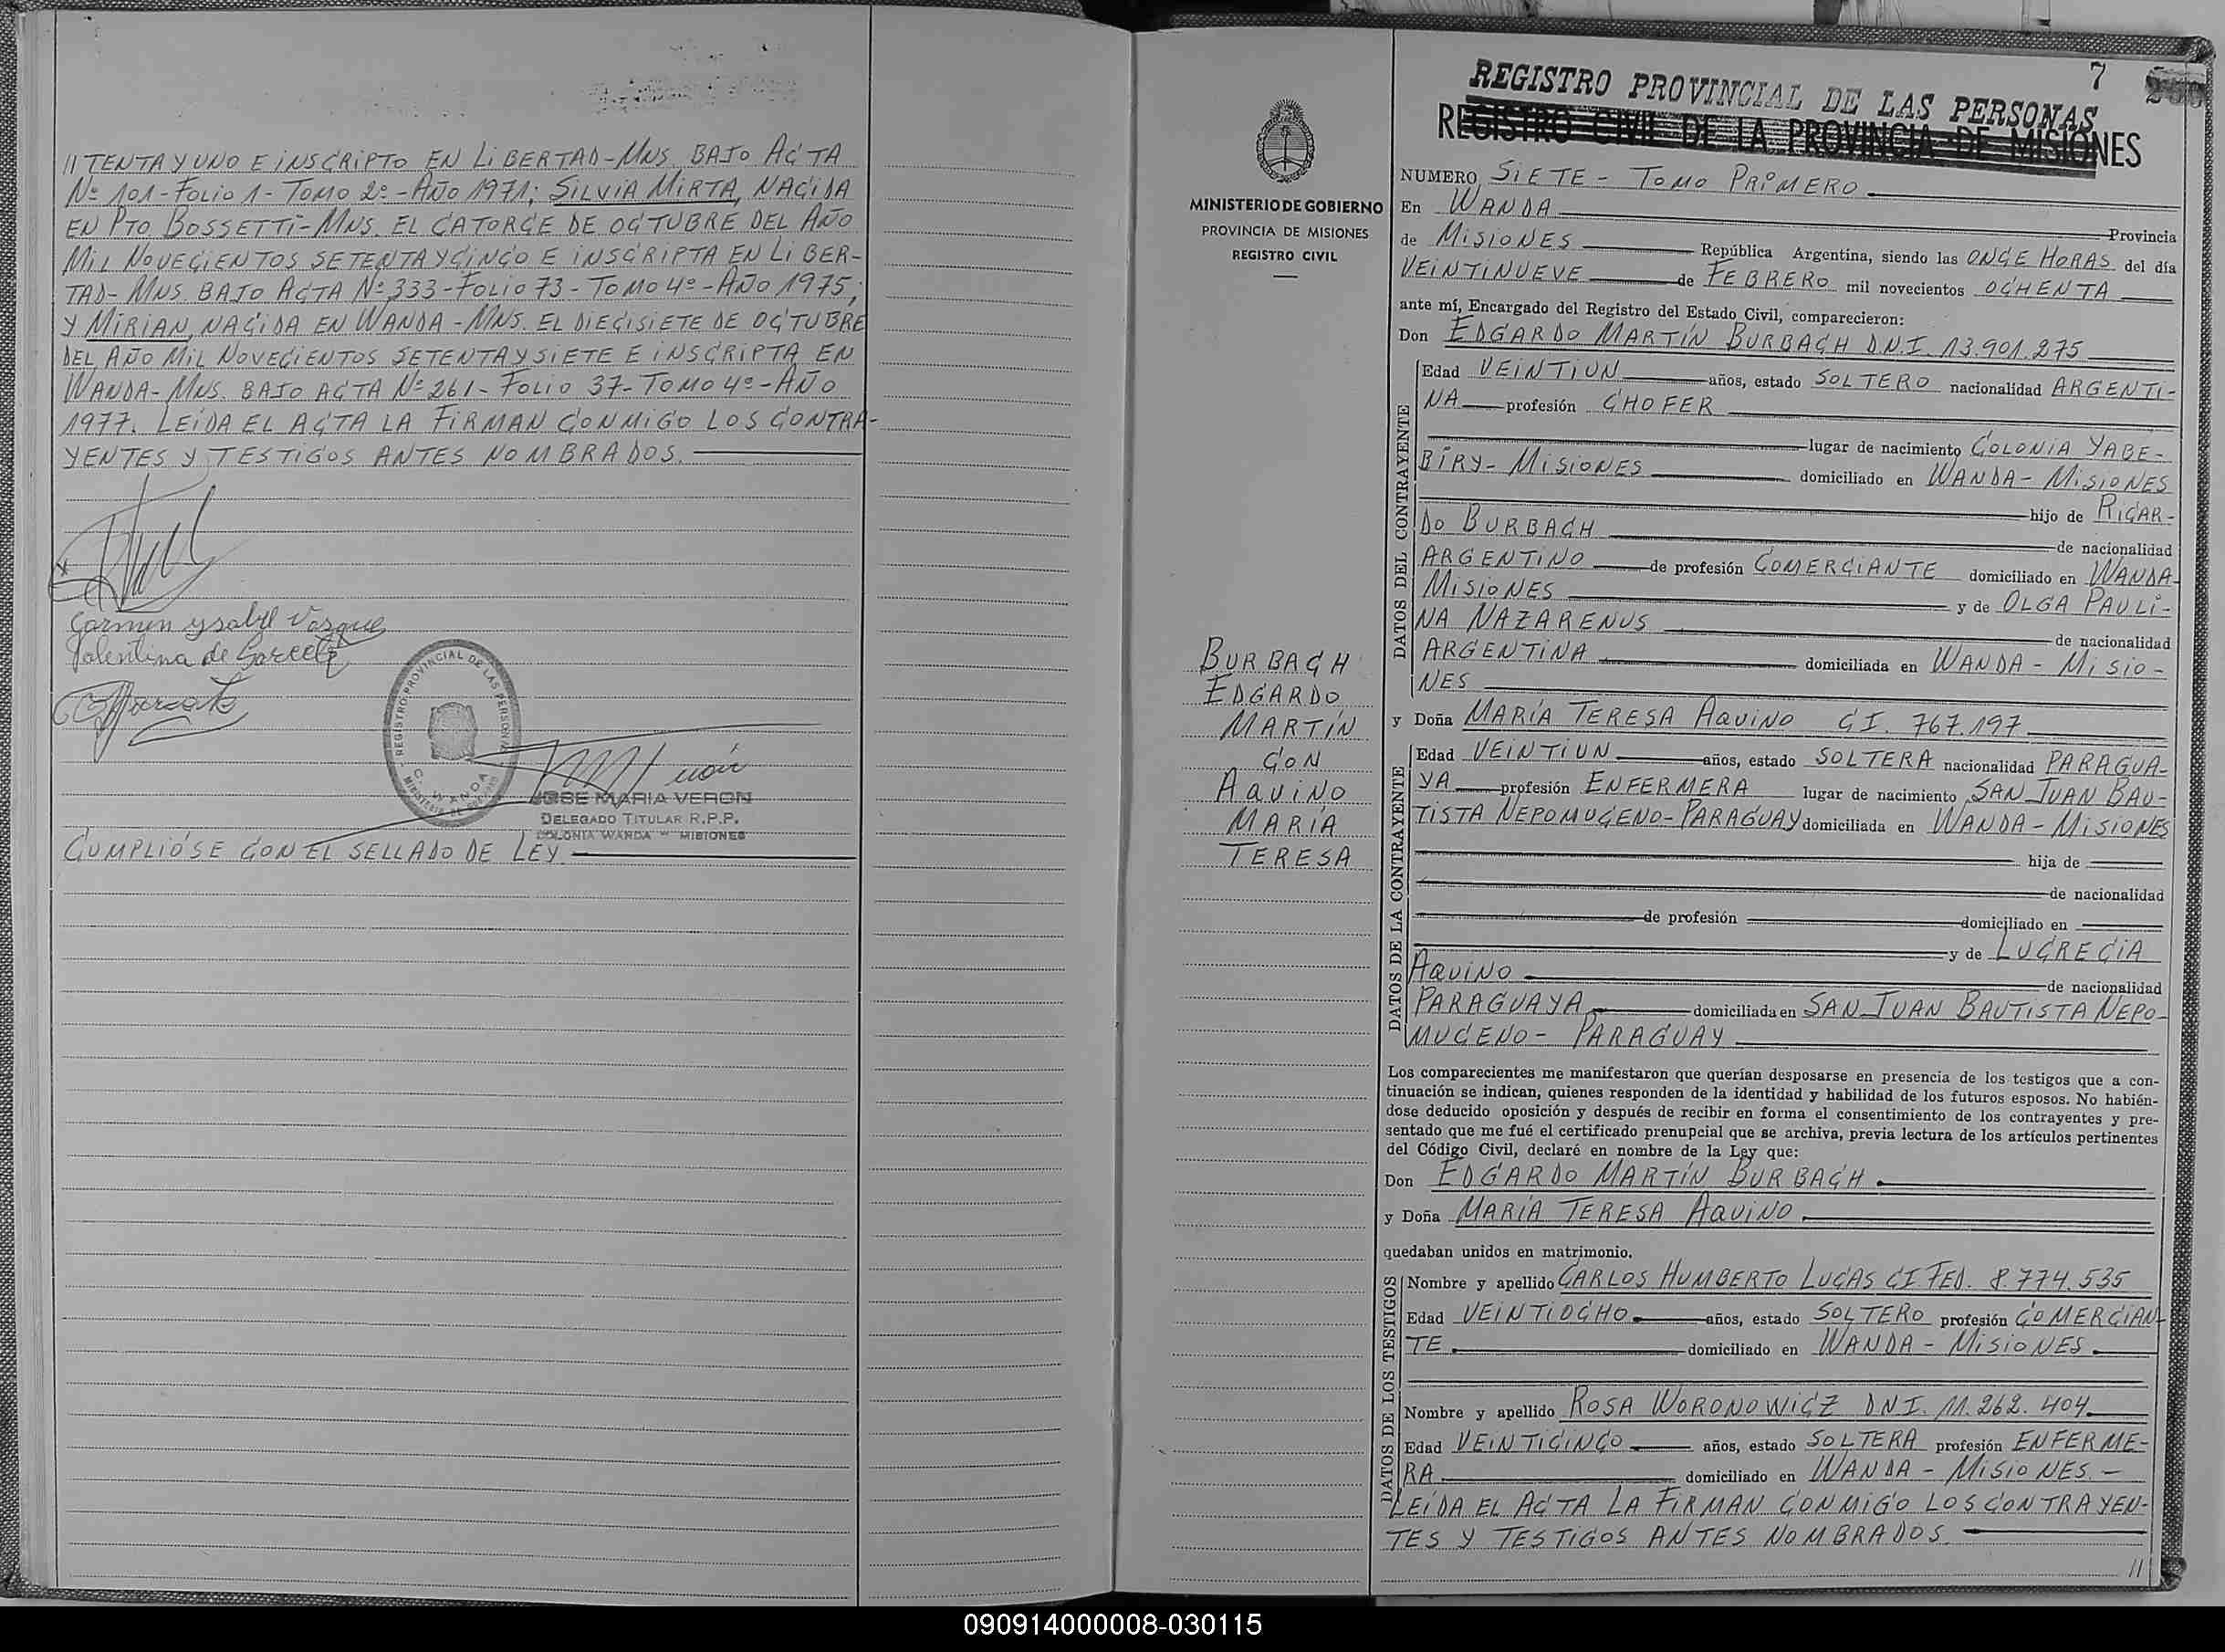 // TENTA Y UNO E INSCRIPTO EN LIBERTAD-MNS. BAJO ACTA
Nº 101-FOLIO 1-TOMO 2º-AÑO 1971; SILVIA MIRTA, NACIDA
EN PTO BOSSETTI-MNS. EL CATORCE DE OCTUBRE DEL AÑO
MIL NOVECIENTOS SETENTA Y CINCO E INSCRIPTA EN LIBER-
TAD-MNS. BAJO ACTA Nº 333-FOLIO 73-TOMO 4º-AÑO 1975;
Y MIRIAN, NACIDA EN WANDA-MNS. EL DIECISIETE DE OCTUBRE
DEL AÑO MIL NOVECIENTOS SETENTA Y SIETE E INSCRIPTA EN
WANDA-MNS. BAJO ACTA Nº 261-FOLIO 37-TOMO 4º-AÑO
1977. LEÍDA EL ACTA LA FIRMAN CONMIGO LOS CONTRA-
YENTES Y TESTIGOS ANTES NOMBRADOS.
Carmen ysabel Vasque
Valentina de
REGISTRO PROVINCIAL DE LAS PERSONAS
WANDA
JOSE MARIA VERON
DELEGADO TITULAR R.P.P.
COLONIA WANDA - MISIONES
CUMPLIÓSE CON EL SELLADO DE LEY.
MINISTERIO DE GOBIERNO
PROVINCIA DE MISIONES
REGISTRO CIVIL
BURBACH
EDGARDO
MARTÍN
CON
AQUINO
MARÍA
TERESA
7
REGISTRO PROVINCIAL DE LAS PERSONAS
REGISTRO CIVIL DE LA PROVINCIA DE MISIONES
NUMERO SIETE - TOMO PRIMERO
En WANDA Provincia
de MISIONES República Argentina, siendo las ONCE HORAS del día
VEINTINUEVE de FEBRERO mil novecientos OCHENTA
ante mí, Encargado del Registro del Estado Civil, comparecieron:
Don EDGARDO MARTÍN BURBACH D.N.I. 13.901.275
DATOS DEL CONTRAYENTE
Edad VEINTIUN años, estado SOLTERO nacionalidad ARGENTI-
NA profesión CHOFER
lugar de nacimiento COLONIA YABE-
BIRY-MISIONES domiciliado en WANDA-MISIONES
hijo de RICAR-
DO BURBACH de nacionalidad
ARGENTINO de profesión COMERCIANTE domiciliado en WANDA-
MISIONES y de OLGA PAULI-
NA NAZARENUS de nacionalidad
ARGENTINA domiciliada en WANDA-MISIO-
NES
y Doña MARÍA TERESA AQUINO C.I. 767.197
DATOS DE LA CONTRAYENTE
Edad VEINTIUN años, estado SOLTERA nacionalidad PARAGUA-
YA profesión ENFERMERA lugar de nacimiento SAN JUAN BAU-
TISTA NEPOMUCENO-PARAGUAY domiciliada en WANDA-MISIONES
hija de
de nacionalidad
de profesión domiciliado en
y de LUCRECIA
AQUINO de nacionalidad
PARAGUAYA domiciliada en SAN JUAN BAUTISTA NEPO-
MUCENO-PARAGUAY
Los comparecientes me manifestaron que querían desposarse en presencia de los testigos que a con-
tinuación se indican, quienes responden de la identidad y habilidad de los futuros esposos. No habién-
dose deducido oposición y después de recibir en forma el consentimiento de los contrayentes y pre-
sentado que me fué el certificado prenupcial que se archiva, previa lectura de los artículos pertinentes
del Código Civil, declaré en nombre de la Ley que:
Don EDGARDO MARTÍN BURBACH
y Doña MARÍA TERESA AQUINO
quedaban unidos en matrimonio.
DATOS DE LOS TESTIGOS
Nombre y apellido CARLOS HUMBERTO LUCAS C.I. FED. 8.774.535
Edad VEINTIOCHO años, estado SOLTERO profesión COMERCIAN-
TE domiciliado en WANDA-MISIONES
Nombre y apellido ROSA WORONOWICZ D.N.I. 11.262.404
Edad VEINTICINCO años, estado SOLTERA profesión ENFERME-
RA domiciliado en WANDA-MISIONES.-
LEÍDA EL ACTA LA FIRMAN CONMIGO LOS CONTRAYEN-
TES Y TESTIGOS ANTES NOMBRADOS.
//
090914000008-030115